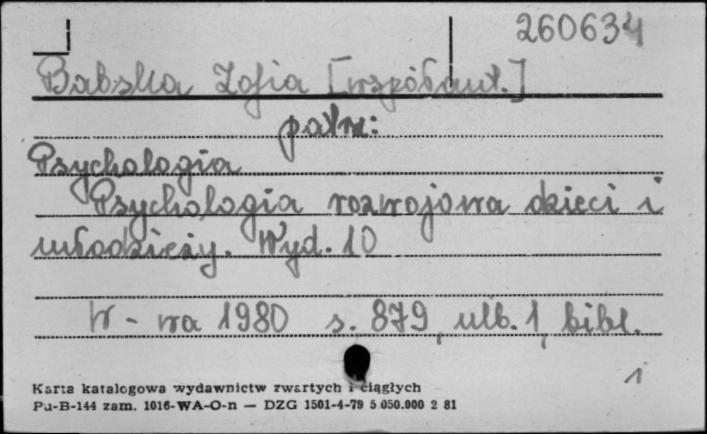 260634
Babska Zofia [współaut.]
patrz:
Psychologia
Psychologia rozwojowa dzieci i
młodzieży. Wyd. 10
W-wa 1980 s. 879, ulb. 1, bibl.
1
Karta katalogowa wydawnictw zwartych i ciągłych
Pu-B-144 zam. 1016-WA-O-n — DZG 1501-4-79 5.050.000 2 81